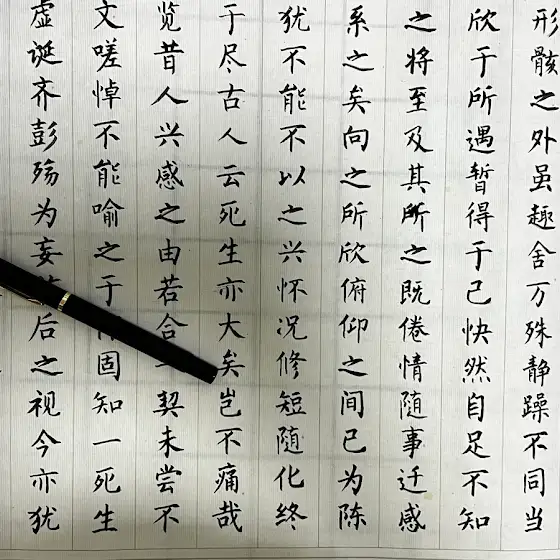 形骸之外虽趣舍万殊静躁不同当
欣于所遇暂得于己快然自足不知
之将至及其所之既倦情随事迁感
系之矣向之所欣俯仰之间已为陈
犹不能不以之兴怀况修短随化终
于尽古人云死生亦大矣岂不痛哉
览昔人兴感之由若合一契未尝不
文嗟悼不能喻之于固知一死生
虚诞齐彭殇为妄后之视今亦犹